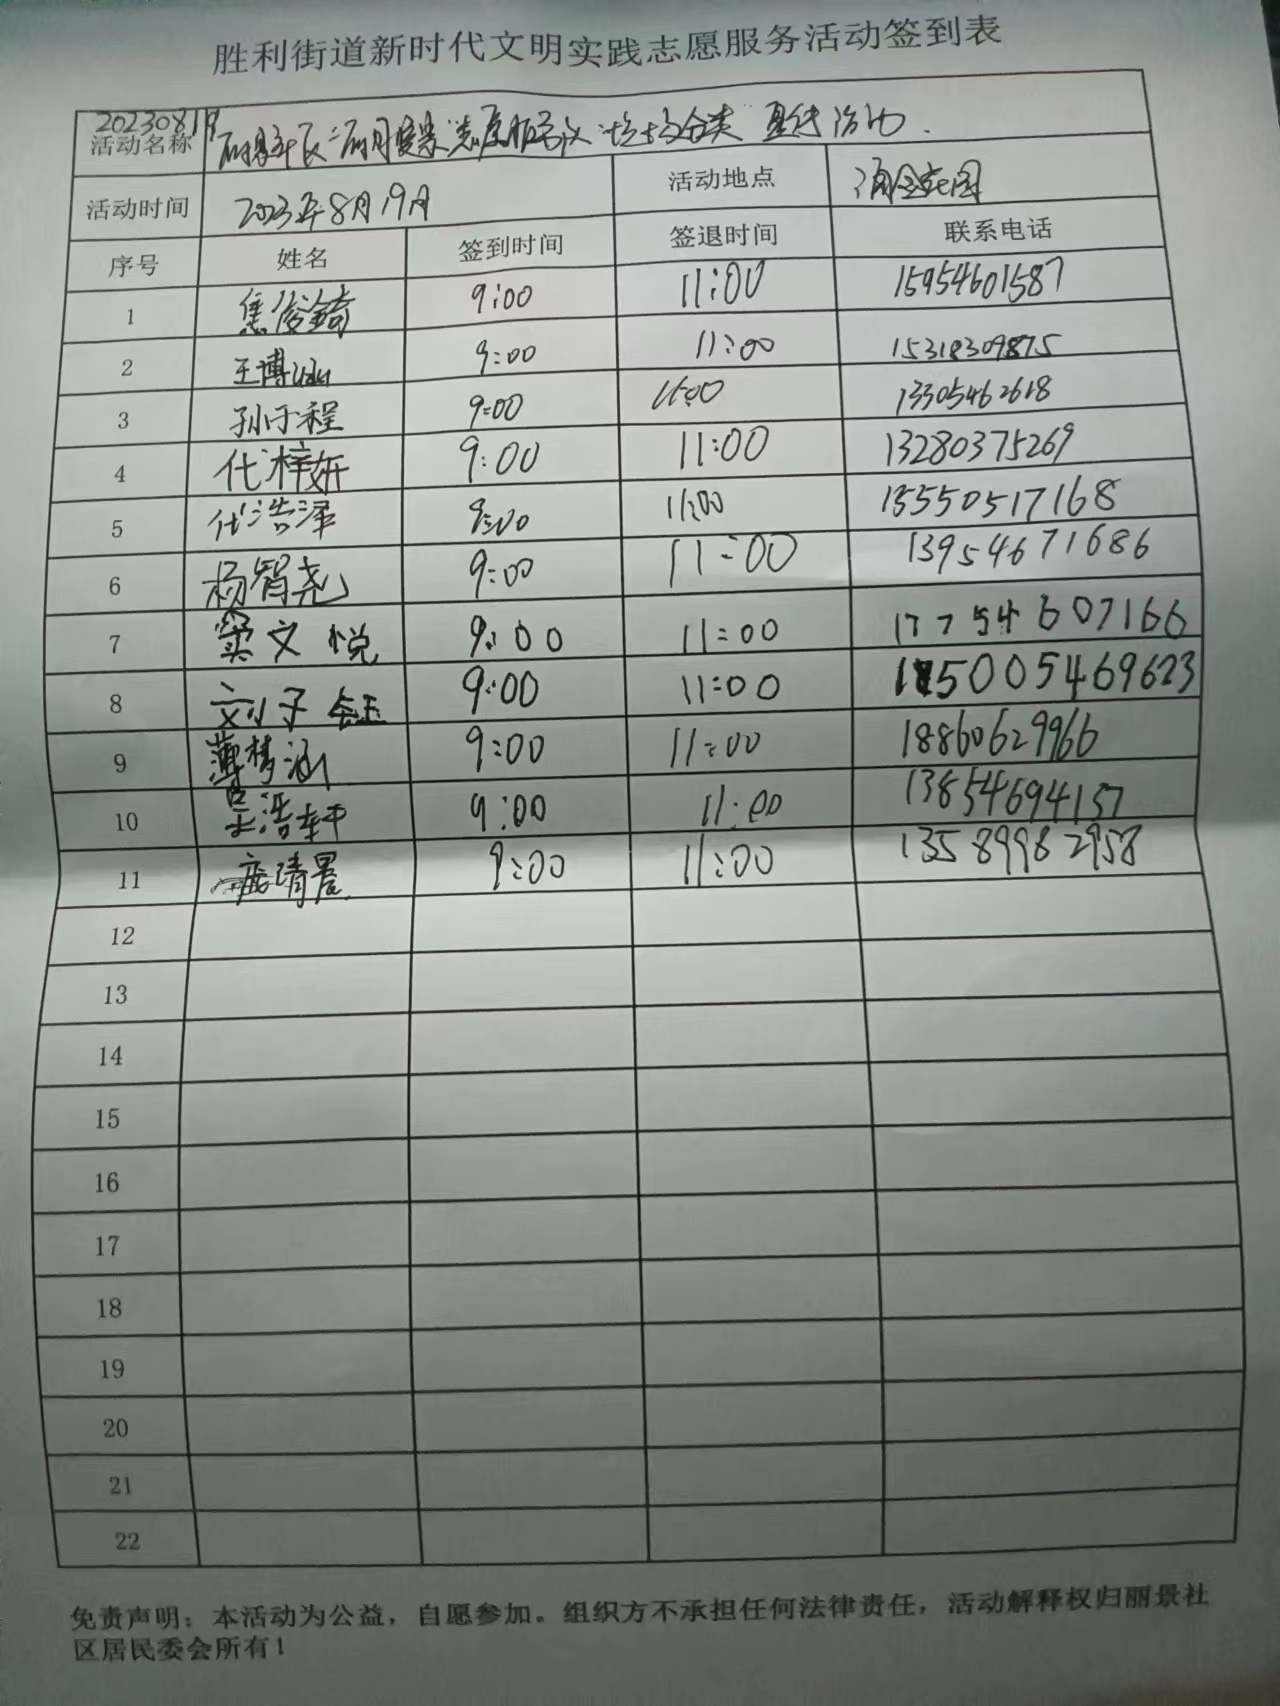 胜利街道新时代文明实践志愿服务活动签到表
20230819
活动名称 垃圾分类 宣传活动.
活动时间 2023年8月19日 活动地点
序号 姓名 签到时间 签退时间 联系电话
1 焦俊锜 9:00 11:00 15954601587
2 王博 9:00 11:00 15318309875
3 孙于程 9:00 11:00 13305462618
4 代梓妍 9:00 11:00 13280375269
5 代浩泽 9:00 11:00 13550517168
6 杨智尧 9:00 11:00 13954671686
7 窦文悦 9:00 11:00 17754607166
8 刘子钰 9:00 11:00 15005469623
9 薄梦涵 9:00 11:00 18860629966
10 吴浩轩 9:00 11:00 13854694157
11 庞清景 9:00 11:00 13589982958
12
13
14
15
16
17
18
19
20
21
22
免责声明：本活动为公益，自愿参加。组织方不承担任何法律责任，活动解释权归丽景社
区居民委会所有！